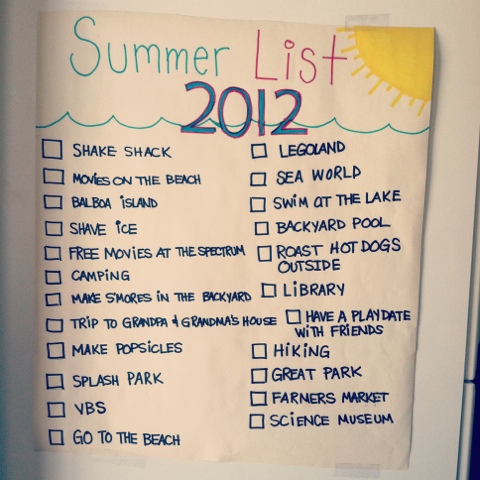 Summer List
2012
SHAKE SHACK
MOVIES ON THE BEACH
BALBOA ISLAND
SHAVE ICE
FREE MOVIES AT THE SPECTRUM
CAMPING
MAKE S'MORES IN THE BACKYARD
TRIP TO GRANDPA & GRANDMA'S HOUSE
MAKE POPSICLES
SPLASH PARK
VBS
GO TO THE BEACH
LEGOLAND
SEA WORLD
SWIM AT THE LAKE
BACKYARD POOL
ROAST HOT DOGS
OUTSIDE
LIBRARY
HAVE A PLAYDATE
WITH FRIENDS
HIKING
GREAT PARK
FARMERS MARKET
SCIENCE MUSEUM